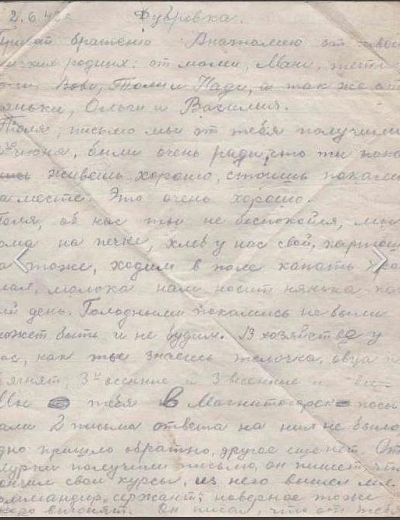 2.6.42г Дубровка.
Привет братению Анатолию от твоих
родных: от мамы, Мани, тети
Вовы, Толи и Нади, а так же от
няньки, Ольги и Василия.
Толя, письмо мы от тебя получили
июня, были очень рады, что ты пока
живешь хорошо, стоишь покамест
на месте. Это очень хорошо.
Толя, об нас ты не беспокойся, мы
дома на печке, хлеб у нас свой, картош
ка тоже, ходим в поле копать
молока нам носит нянька каж
ый день. Голодными покамись не были
может быть и не будим. В хозяйстве у
нас, как ты знаешь телочка, овца и
ягнят, 3 осенние и 3 весенние и
Мы тебя в Магнитогорск посы
лали 2 письма ответа на них не было
одно пришло обратно, другое еще нет. От
Шурки получили письмо, он пишет, что
кончил свои курсы, из него вышел мл.
командир, сержант; наверное тоже
скоро выгонят. Он писал, что от тебя